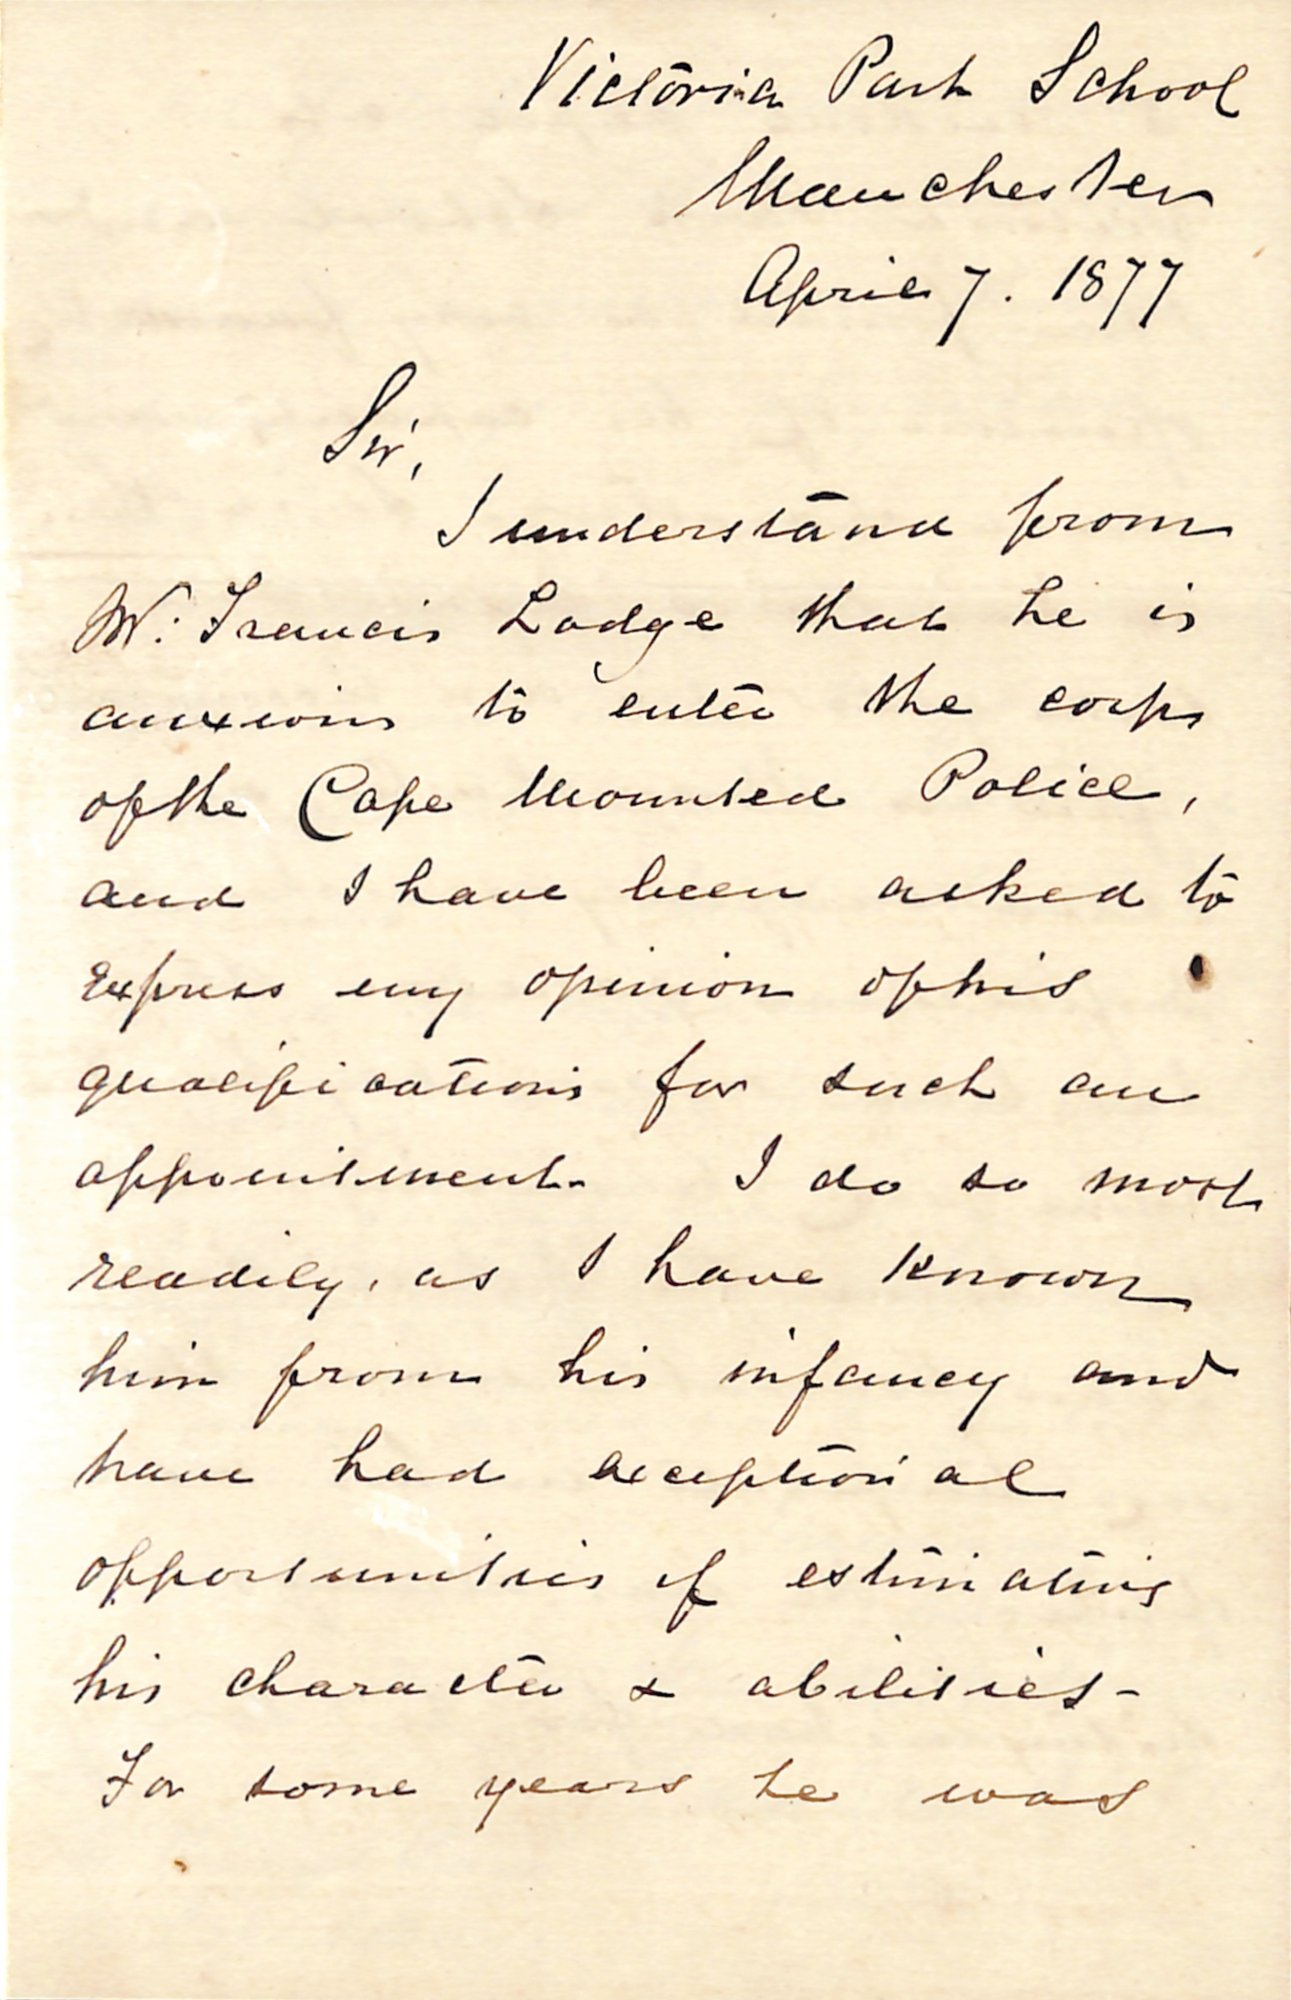 Victoria Park School
Manchester
April 7. 1877
Sir,
I understand from
Mr. Francis Lodge that he is
anxious to enter the corps
of the Cape Mounted Police,
and I have been asked to
express my opinion of his
qualifications for such an
appointment. I do so most
readily, as I have known
him from his infancy and
have had exceptional
opportunities of estimating
his character & abilities -
For some years he was